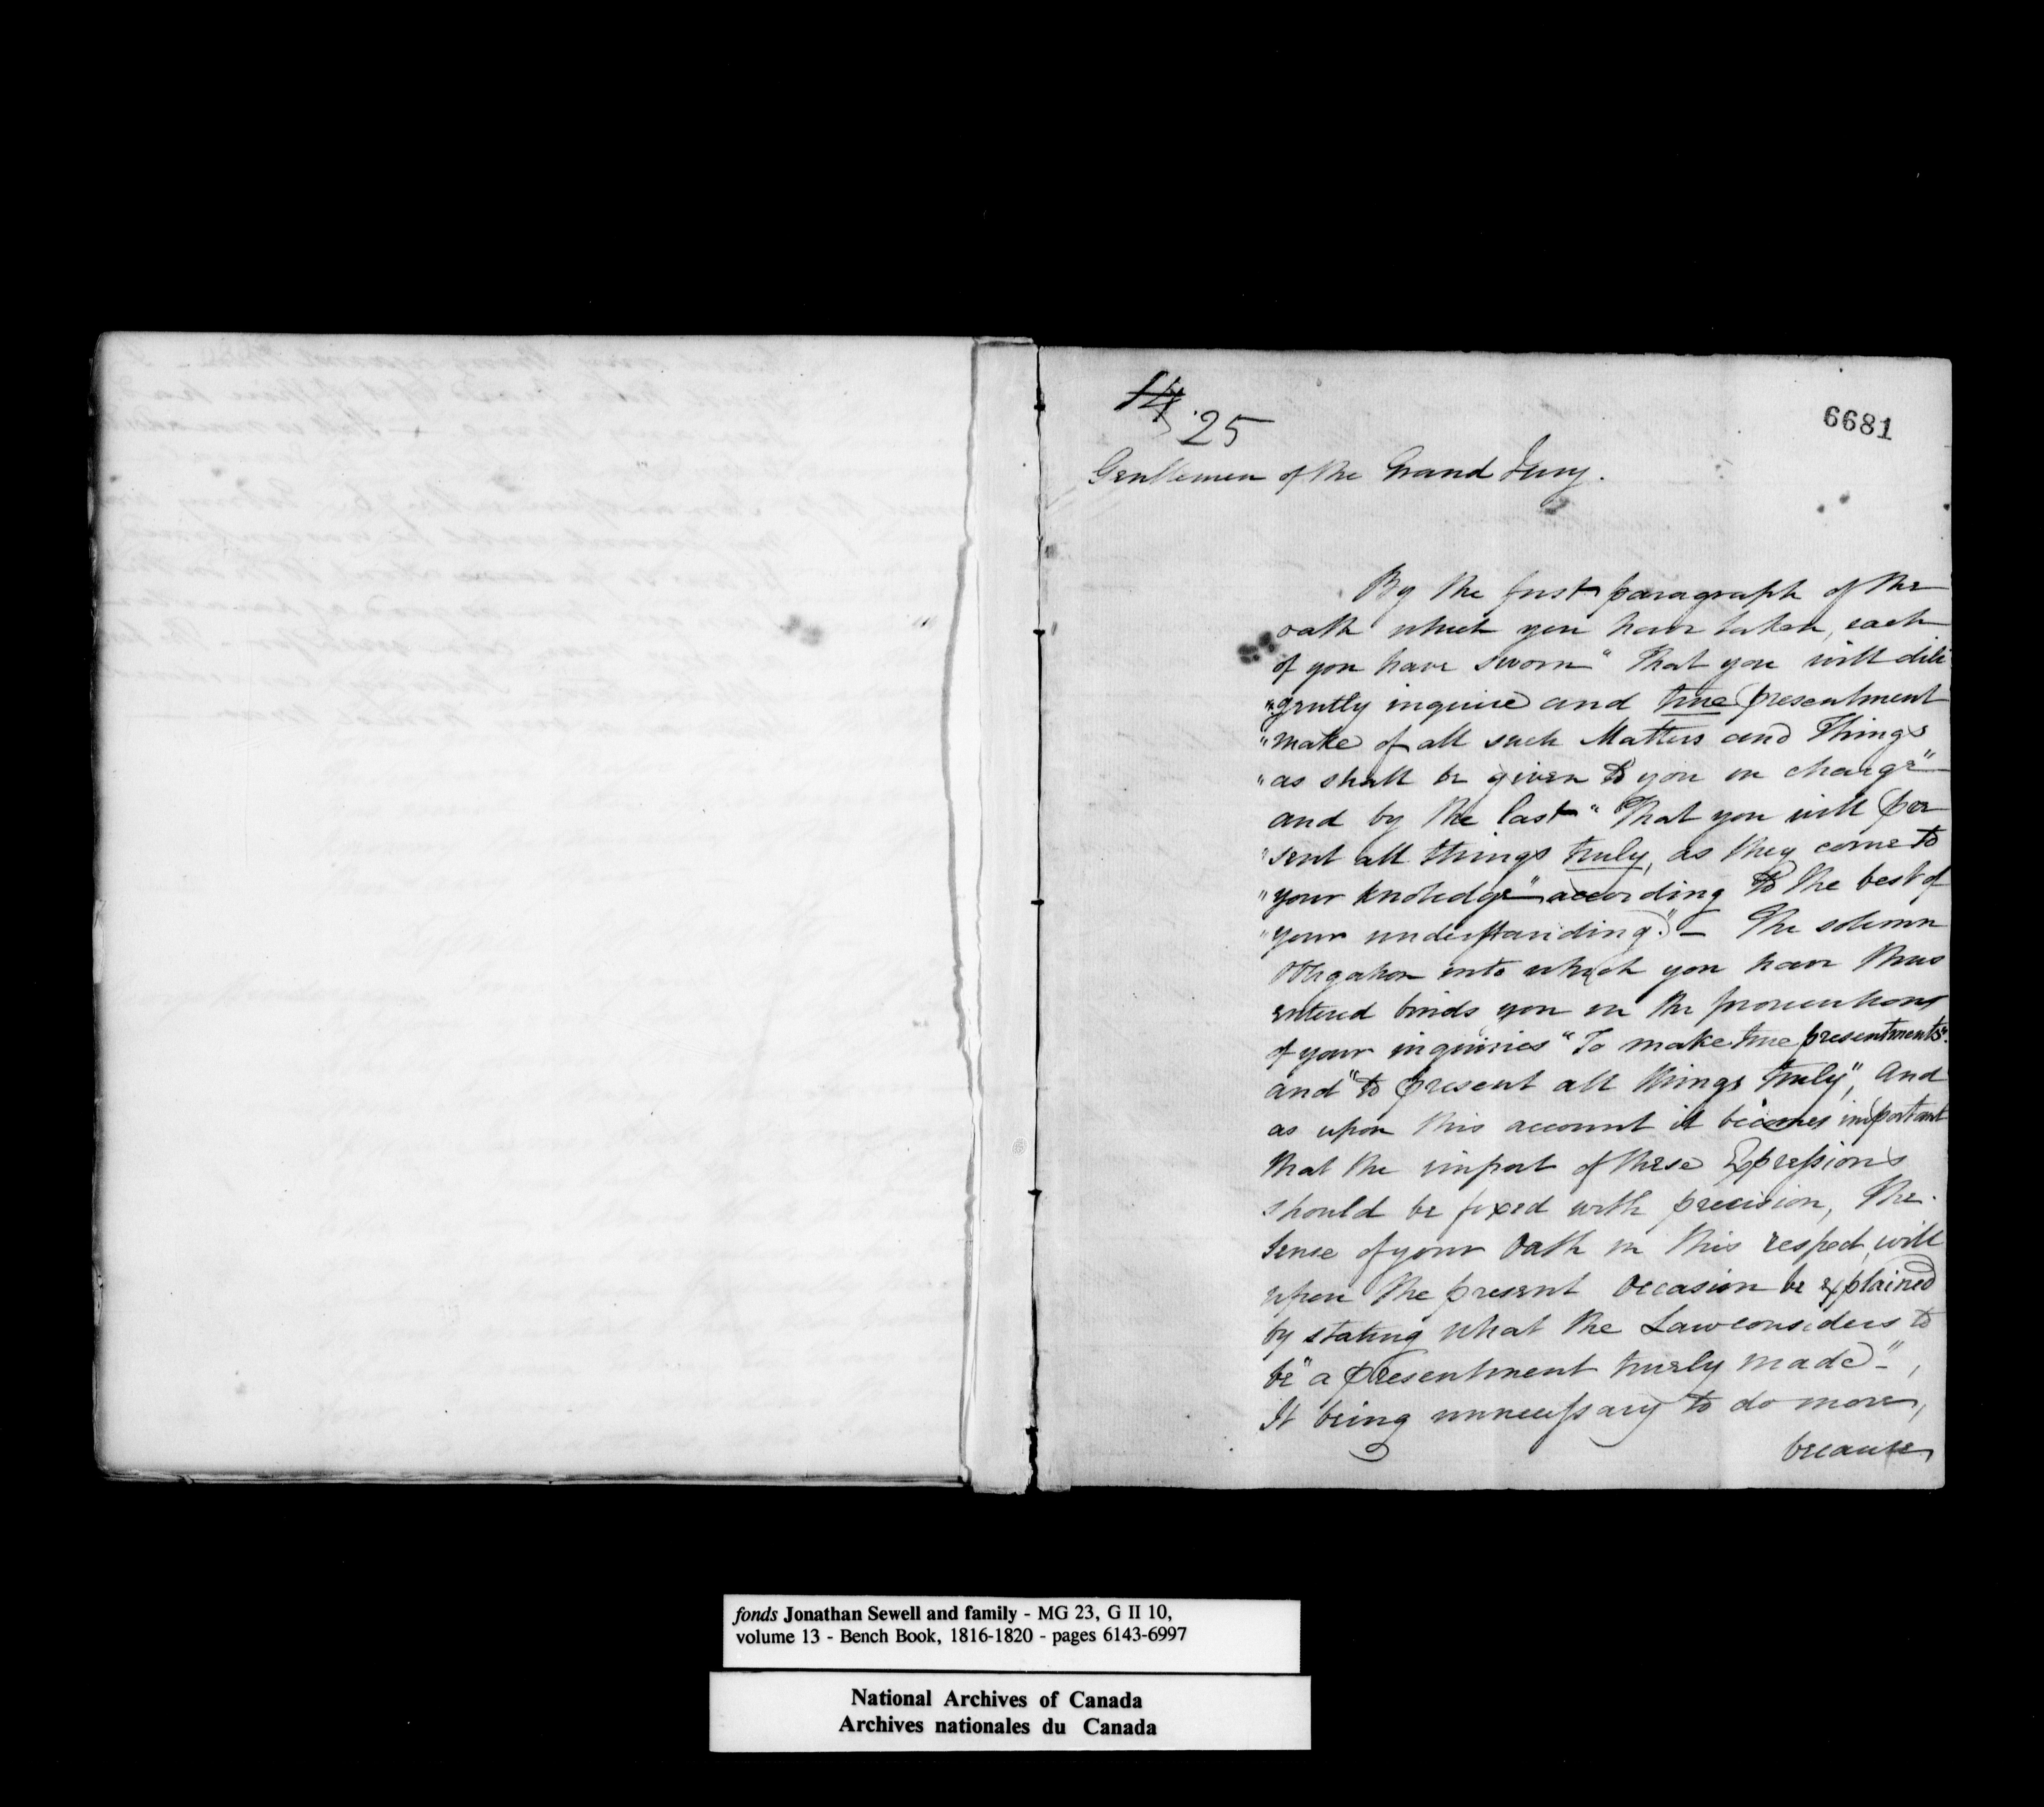 14. 25
6681
Gentlemen of the Grand Jury.
By the first paragraph of the
oath which you have taken, each
of you have sworn "That you will dili
"gently inquire and true presentment
"make of all such Matters and Things
"as shall be given to you in charge"
and by the last "That you will pre
"sent all things truly, as they come to
"your knoledge" according to the best of
"your understanding." – The solemn
Obligation into which you have thus
entered binds you in the
of your inquiries "To make true presentments".
and "to present all things truly", And
as upon this account it becomes important
that the import of these Expressions
should be fixed with precision, the
sense of your Oath in this respect, will
upon the present Occasion be explained
by stating what the Law considers to
be "a presentment truely made",
It being unnecessary to do more,
because
fonds Jonathan Sewell and family - MG 23, G II 10,
volume 13 - Bench Book, 1816-1820 - pages 6143-6997
National Archives of Canada
Archives nationales du Canada